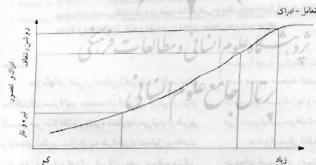 تعامل - ادراک
روشن و شفاف
ادراک و تصور
تیره و تار
کم
زیاد
پژوهشگاه علوم انسانی و مطالعات فرهنگی
پرتال جامع علوم انسانی